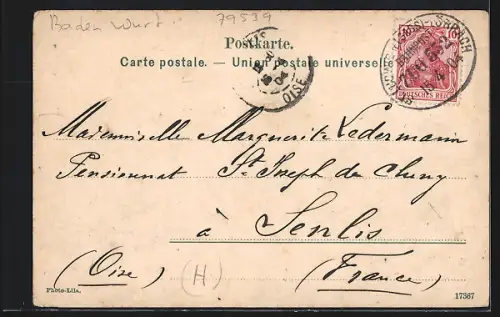 Baden Wurt.
79539
Postkarte.
Carte postale. — Union postale universelle
OISE
04
10
DEUTSCHES REICH
BAHNPOST
15 4 04
Mademoiselle Marguerite Ledermann
Pensionnat St Joseph de Cluny
à Senlis
(Oise) (H) (France)
Photo-Lila. 17367